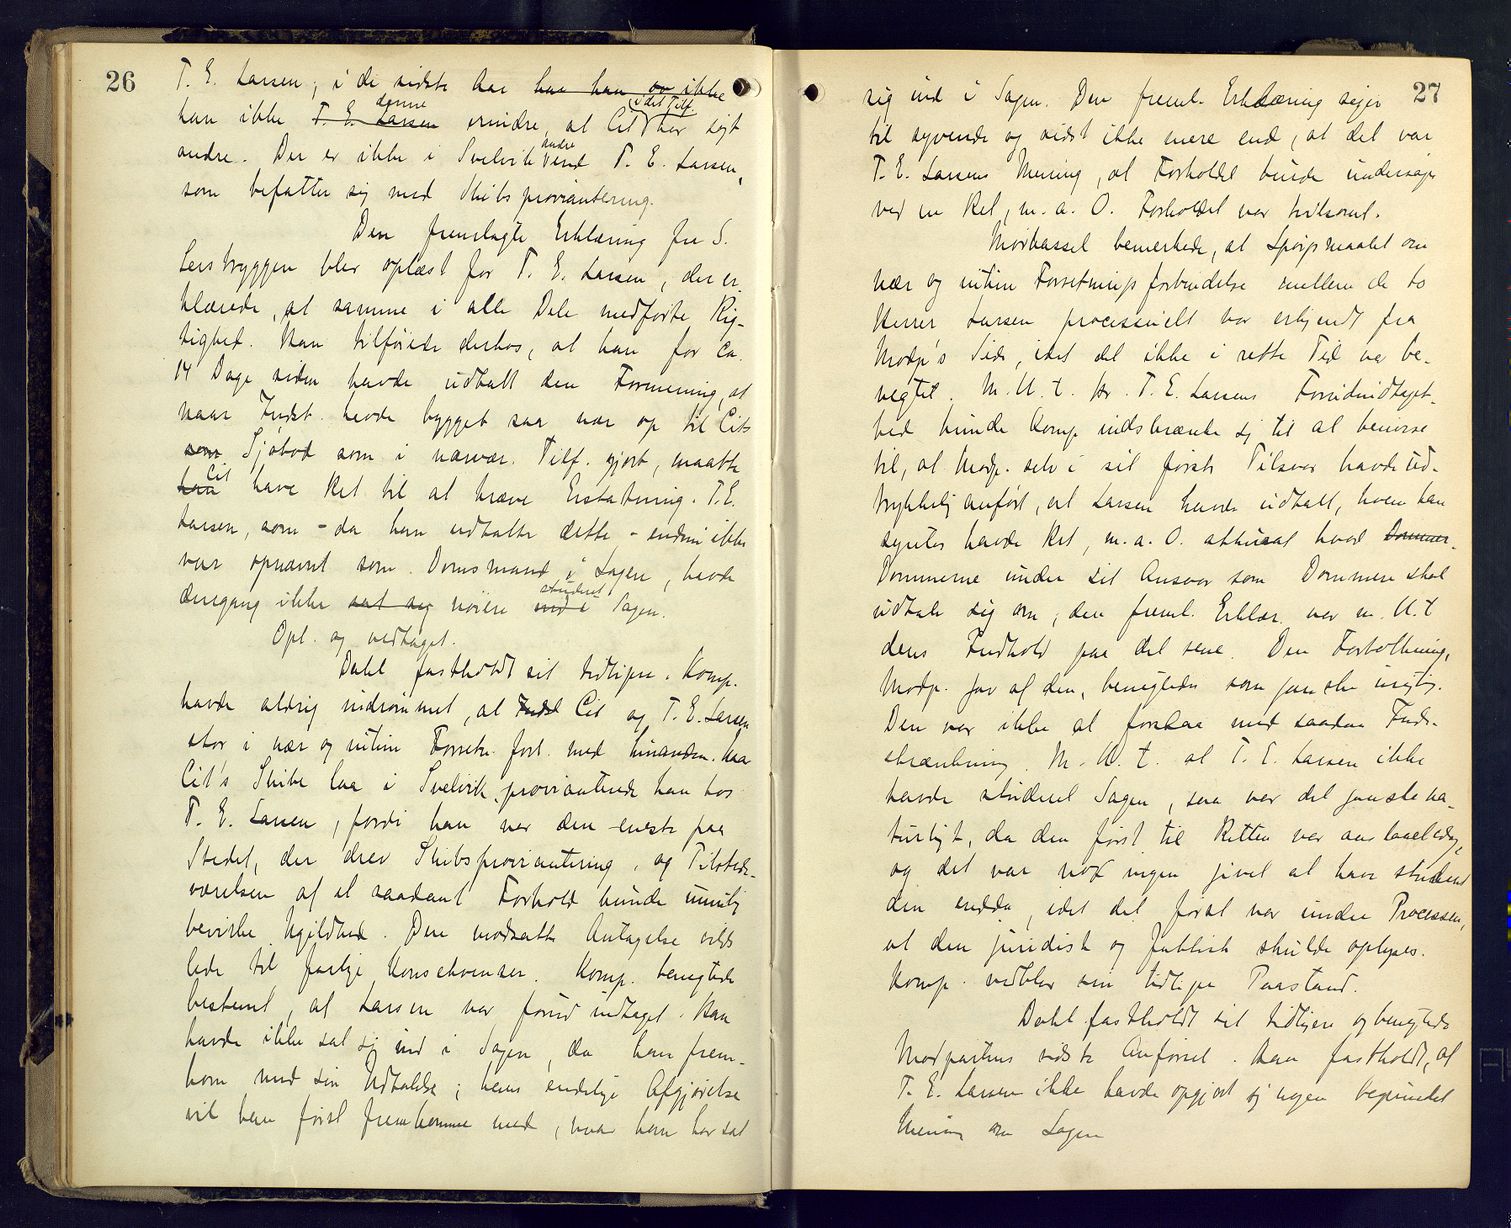 26
T. E. Larsen, i de sidste Aar har han og ikke
han ikke T. E. Larsen denne erindre, at Cit i det Tilf. har sejt
andre. Der er ikke i Svelvik andre end T. E. Larsen,
som befatter sig med Skibsproviantering.
Den fremlagte Erklæring fra S.
Leirbryggen blev oplæst for T. E. Larsen, der er-
klærede, at samme i alle Dele medførte Rig-
tighet. Han tilføiede derhos, at han for ca.
14 Dage siden havde udtalt den Formening, at
naar Indst. havde bygget saa nær op til Cits
som Sjøbod som i nærvær. Tilf. gjort, maatte
han Cit have Ret til at kræve Erstatning. T. E.
Larsen, som - da han udtalte dette - endnu ikke
var opnævnt som Domsmand i Sagen, havde
dengang ikke sat sig nøiere ind i studeret Sagen.
Opl. og vedtaget.
Dahl fastholdt sit tidligere. Komp.
havde aldrig indrømmet, at Indst Cit og T. E. Larsen
stor i nær og intim Forretn. forb. med hinanden. Naar
Cit's Skibe laa i Svelvik, provianterede han hos
T. E. Larsen, fordi han var den eneste paa
Stedet, der drev Skibsproviantering, og Tilstede-
værelsen af et saadant Forhold kunde umulig
bevirke Ugildhed. Den modsatte Antagelse vilde
lede til farlige Konsekvenser. Komp. benegtede
bestemt, at Larsen var forud indtaget. Han
havde ikke sat sig ind i Sagen, da han frem-
kom med sin Udtalelse; hans endelige Afgjørelse
vil han først fremkomme med, naar han har sat
27
sig ind i Sagen. Den freml. Erklæring siger
til syvende og sidst ikke mere end, at det var
T. E. Larsens Mening, at Forholdet burde undersøges
ved en Ret, m. a. O. Forholdet var tvilsomt.
Mørkassel bemerkede, at Spørgsmaalet om
nær og intim Forretningsforbindelse mellem de to
Herrer Larsen processuelt var erkjendt fra
Modp's Side, idet det ikke i rette Tid var be-
negtet. M. H. t. Hr. T. E. Larsens Forudindtaget-
hed kunde Komp indskrænke sig til at henvise
til, at Modp. selv i sit første Tilsvar havde ud-
trykkelig anført, at Larsen havde udtalt, hvem han
syntes havde Ret, m. a. O. akkurat hvad Dommer-
Dommerne under sit Ansvar som Dommere skal
udtale sig om; den freml. Erklær. var m. H. t
dens Indhold paa det rene. Den Fortolkning,
Modp. gav af den, benegtedes som ganske urigtig.
Den var ikke at forstaa med saadan Ind-
skrænkning. M. H. t. at T. E. Larsen ikke
havde studeret Sagen, saa var det ganske na-
turligt, da den først til Retten var anlagt idag,
og det var nok ingen givet at have studeret
den endda, idet det først var under Processen,
at den juridisk og faktisk skulde oplyses.
Komp. vedblev sin tidligere Paastand.
Dahl fastholdt sit tidligere og benegtede
Modpartens sidste Anførsel. Han fastholdt, at
T. E. Larsen ikke havde opgjort sig nogen begrundet
Mening om Sagen